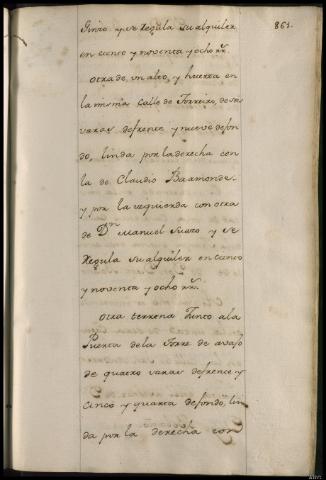 861.
Pinto y se Regula su alquiler
en ciento y noventa y ocho rr.
otra de un alto, y huerta en
la misma Calle de Torreiro, de seis
varas de frente y nueve de fon
do, linda por la derecha con
la de Claudio Baamonde.
y por la izquierda con otra
de Dn Manuel Suazo y se
Regula su alquiler en ciento
y noventa y ocho rr.
otra terrena Junto a la
Puerta de la Torre de avajo
de quatro varas de frente y
Cinco y quarta de fondo, lin
da por la derecha con